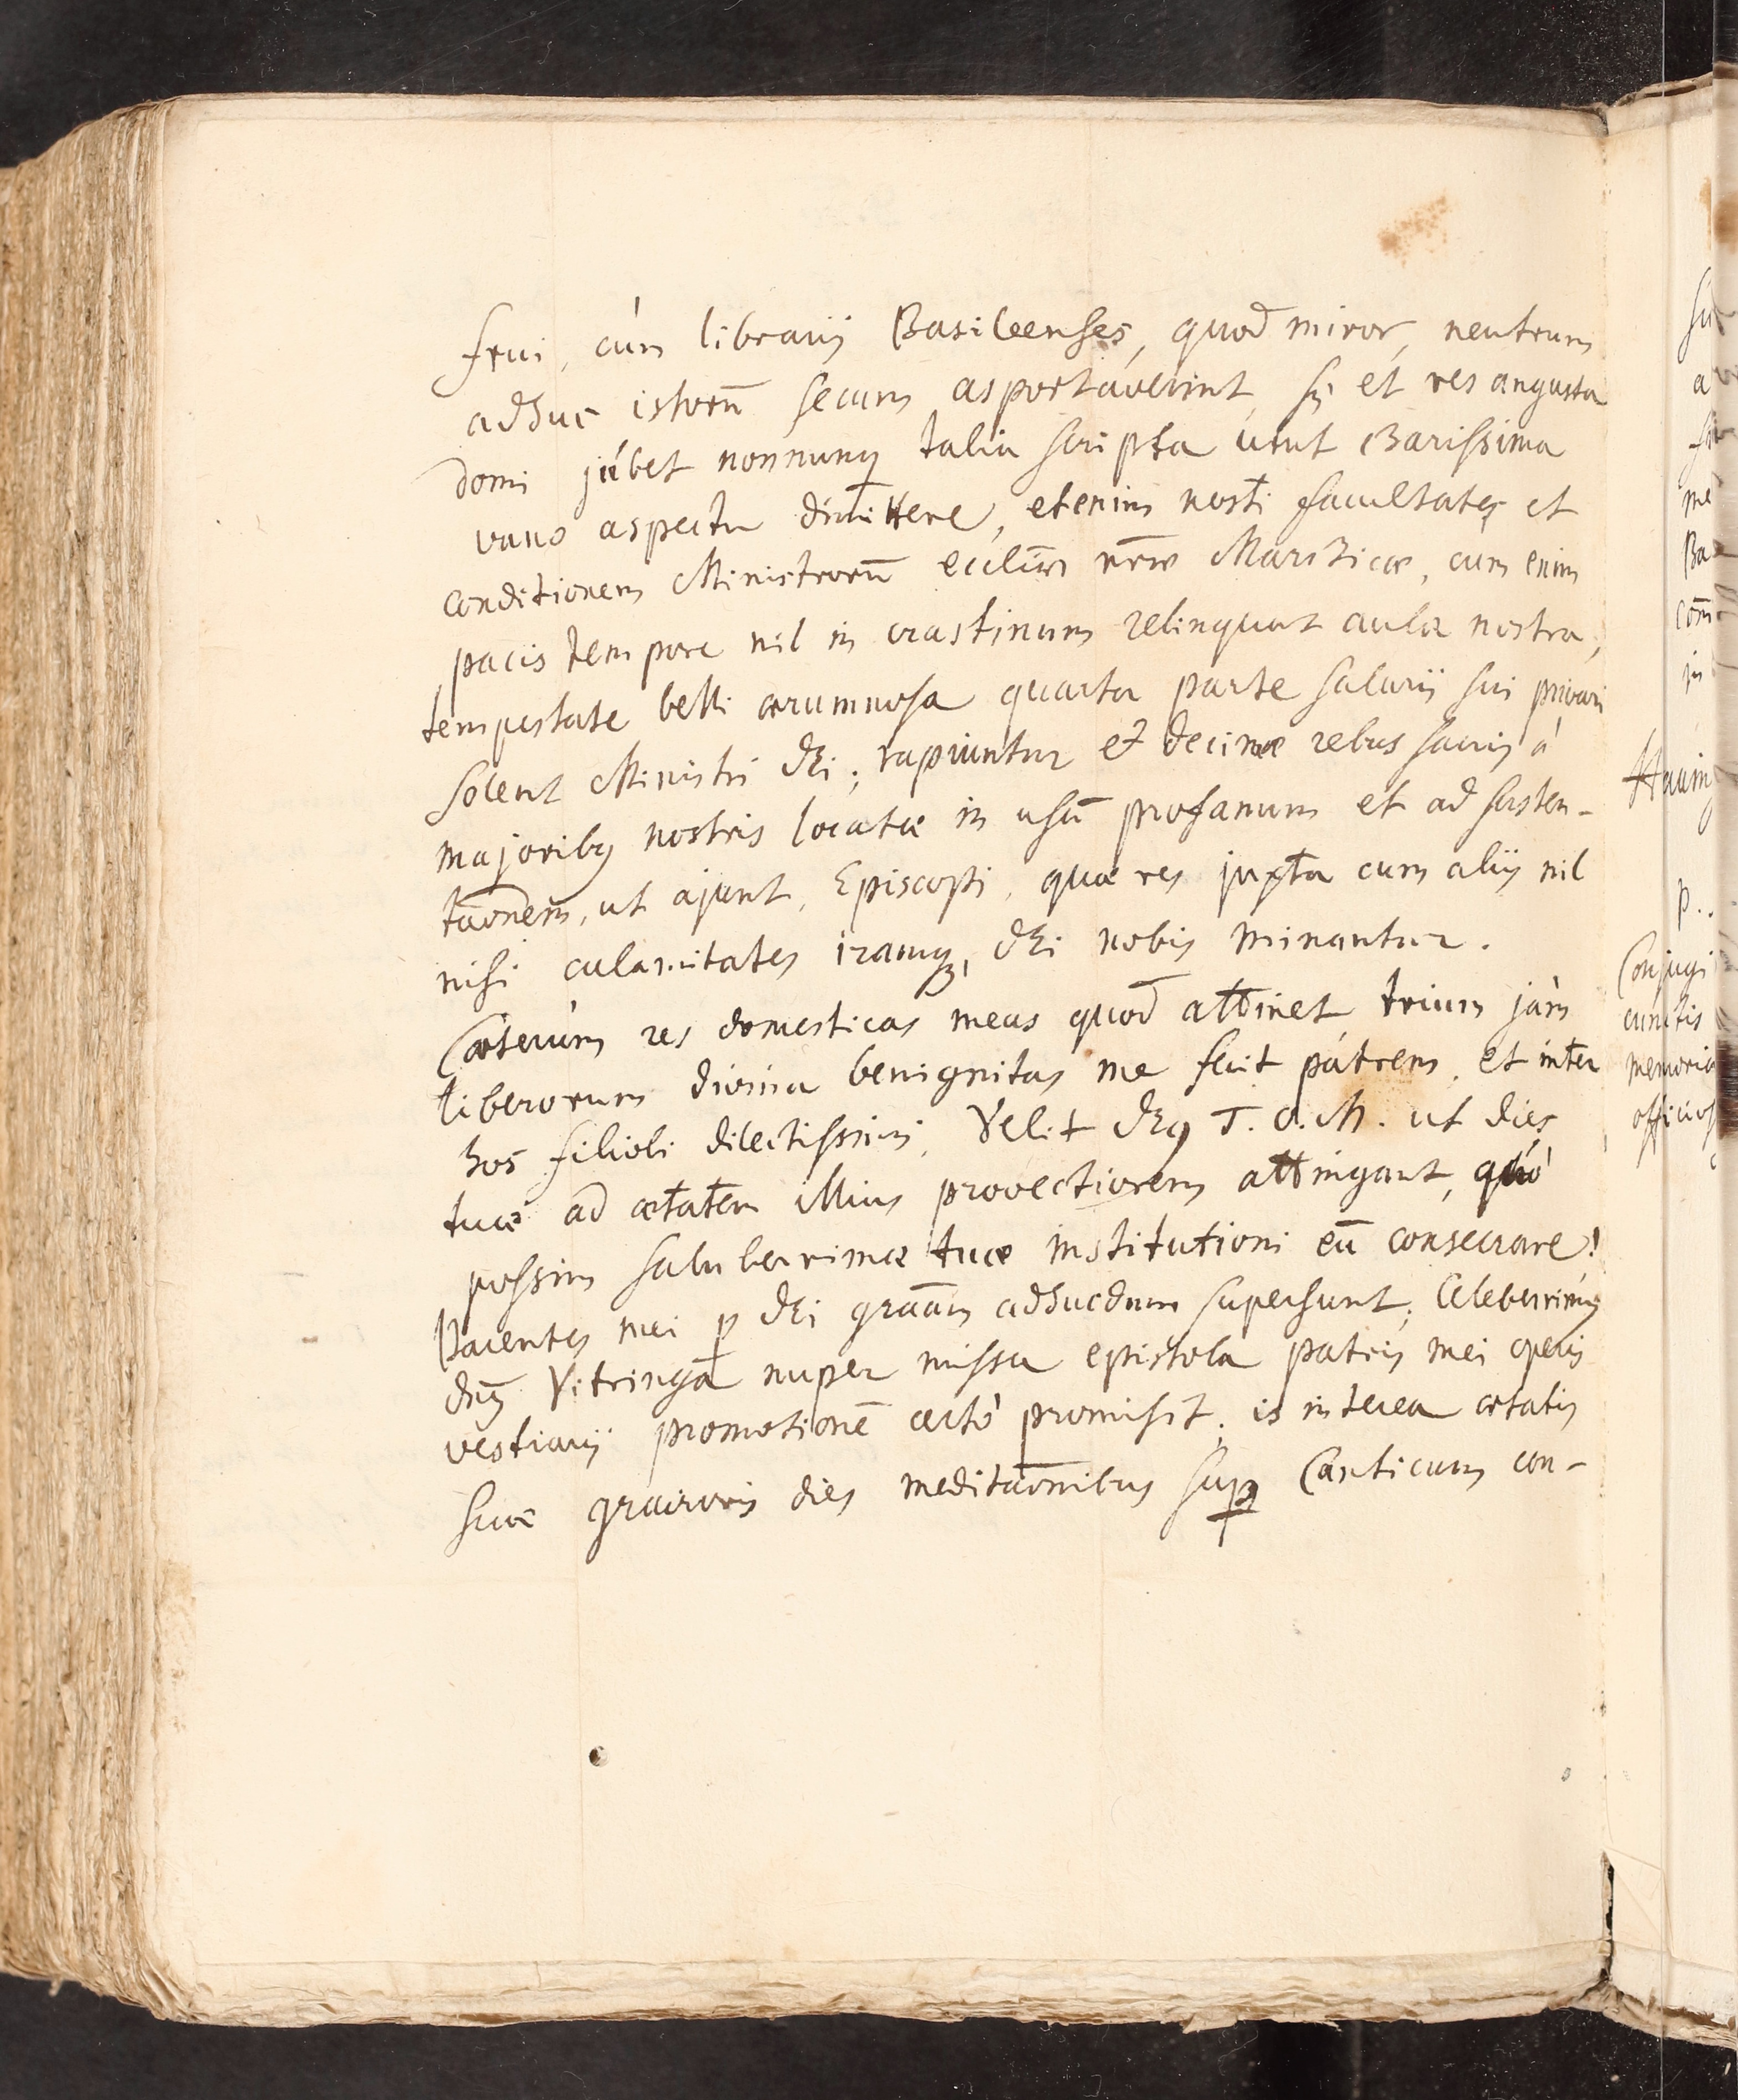 frui, cúm librarij Basileenses, quod miror, neutrum
adhuc istorū secum asportáverint, sꝫ et res angusta
domi júbet nonnunq talia scripta utut Charissima
vano aspectu dimittere, etenim nosti facultates et
conditionem Ministrorū eccliæ nr̄æ Marchicæ, cum enim
pacis tempore nil in crastinum relinquat aula nostra,
tempestate belli ærumnosa quarta parte salarii sui privari
solent Ministri dEi; rapiuntur et decimæ rebus sacris á
majoribꝫ nostris locatæ in usū profanum et ad susten-
taōnem, ut ajunt, Episcopi, quæ res juxta cum aliis nil
nisi calamitates iramqꝫ dEi nobis minantur.
Cæterúm res domesticas meas quod attinet, trium jám
liberorum divina benignitas me fecit pátrem, et inter
hos filioli dilectissimi, Velit dEꝰ T. O. M. ut dies
tuæ ad ætatem illius provectiorem attingant, quó
possim saluberrimæ tuæ institutioni eū consecrare!
Parentes mei p dEi graām adhucdum supersunt; Celeberrimꝰ
dnꝰ Vitringa nuper missa epistola patris mei operis
vestiarij promotionē certó promisit; is interea ætatis
suæ gravioris dies meditaōnibus sup Canticum con-
Conjugi
cunctis
memoria